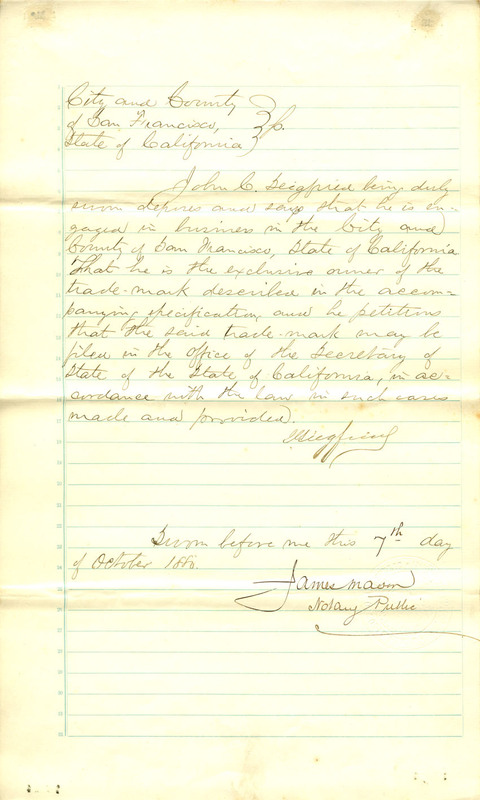 City and County
of San Francisco, } ss.
State of California
John C. Siegfried being duly
sworn deposes and says that he is en-
gaged in business in the City and
County of San Francisco, State of California
That he is the exclusive owner of the
trade-mark described in the accom-
panying specification, and he petitions
that the said trade-mark may be
filed in the office of the Secretary of
State of the State of California, in ac-
cordance with the law in such cases
made and provided.
Siegfried
Sworn before me this 7th day
of October 1880.
James Mason
Notary Public